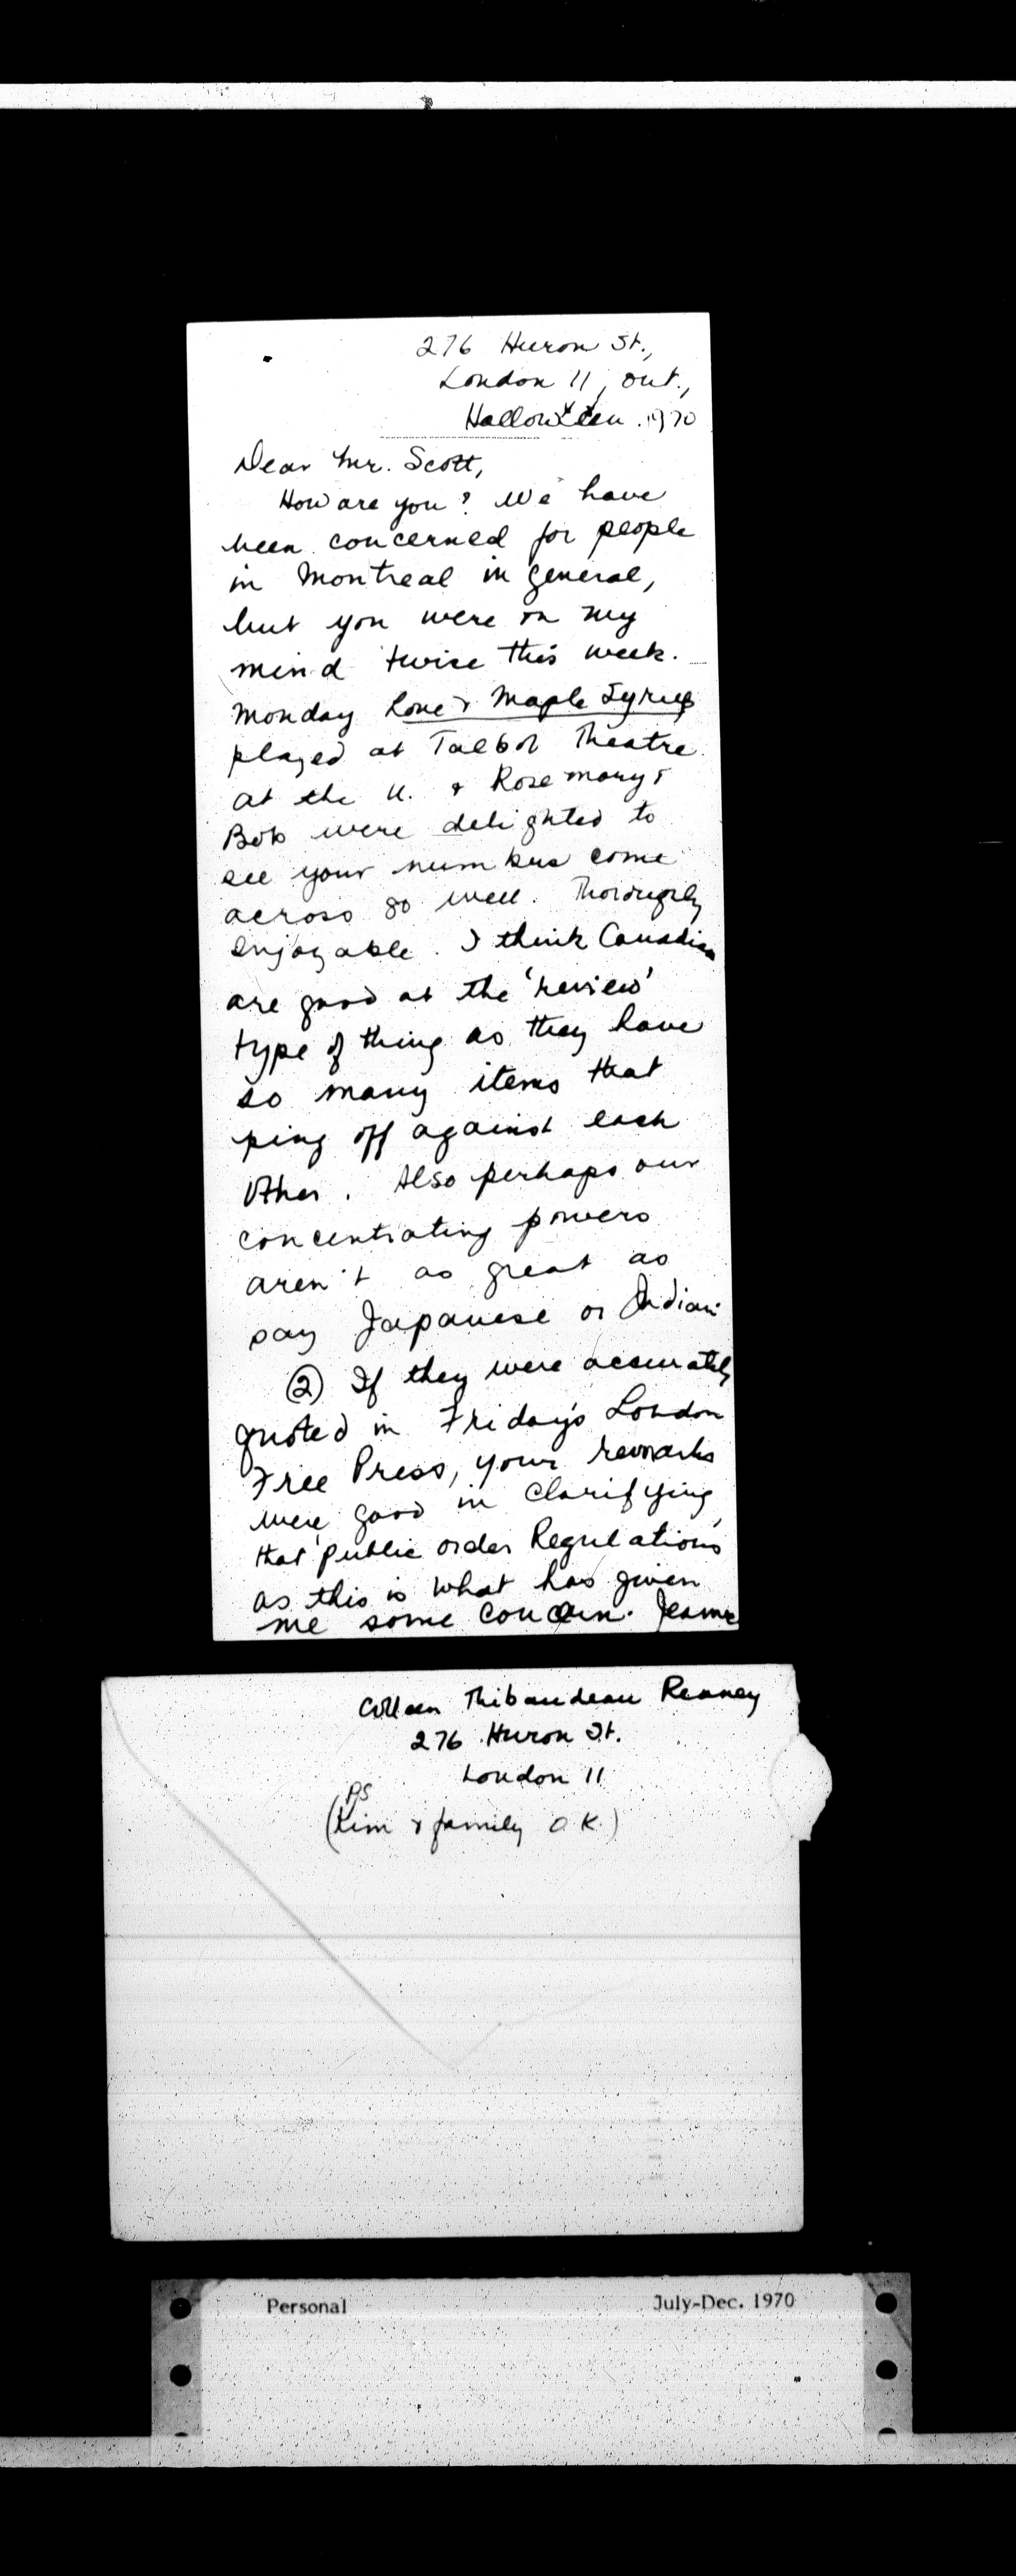 276 Huron St.,
London 11, Ont.,
Hallowe'en. 1970
Dear Mr. Scott,
How are you? We have
been concerned for people
in Montreal in general,
but you were on my
mind twice this week.
Monday Love & Maple Syrup
played at Talbot Theatre
at the U. & Rosemary &
Bob were delighted to
see your number come
across so well. Thoroughly
enjoyable. I think Canadian
are good at the 'review'
type of thing as they have
so many items that
ping off against each
other. Also perhaps our
concentrating powers
aren't as great as
say Japanese or Indian
② If they were accurately
quoted in Friday's London
Free Press, your remarks
were good in clarifying
that public order Regulations
as this is what has given
me some concern.
Colleen Thibaudeau Reaney
276 Huron St.
London 11
PS
(Kim & family O.K.)
Personal July-Dec. 1970